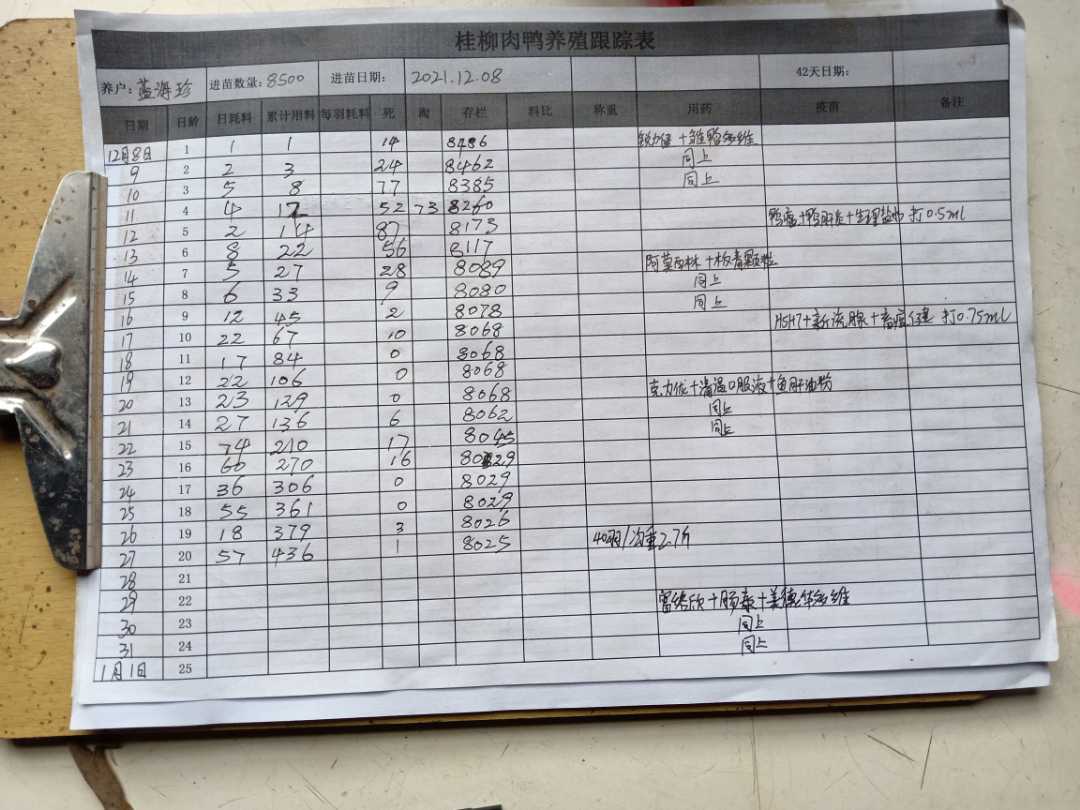 桂柳肉鸭养殖跟踪表
养户: 蓝海珍 进苗数量: 8500 进苗日期: 2021.12.08 42天日期:
日期 日龄 日耗料 累计用料 每羽耗料 死 淘 存栏 料比 称重 用药 疫苗 备注
12月8日 1 1 1 14 8486 锐力健+雏鸭多维
9 2 2 3 24 8462 同上
10 3 5 8 77 8385 同上
11 4 4 12 52 73 8260 鸭瘟+鸭肝炎+生理盐水 打0.5ml
12 5 2 14 87 8173
13 6 8 22 56 8117
14 7 5 27 28 8089 阿莫西林+板青颗粒
15 8 6 33 9 8080 同上
16 9 12 45 2 8078 同上
17 10 22 67 10 8068 H5H7+新流腺+ 打0.75ml
18 11 17 84 0 8068
19 12 22 106 0 8068
20 13 23 129 0 8068 克力优+清温口服液+鱼肝油粉
21 14 27 136 6 8062 同上
22 15 74 210 17 8045 同上
23 16 60 270 16 8029
24 17 36 306 0 8029
25 18 55 361 0 8029
26 19 18 379 3 8026
27 20 57 436 1 8025 40羽/均重2.7斤
28 21
29 22 +肠泰+美德华多维
30 23 同上
31 24 同上
1月1日 25